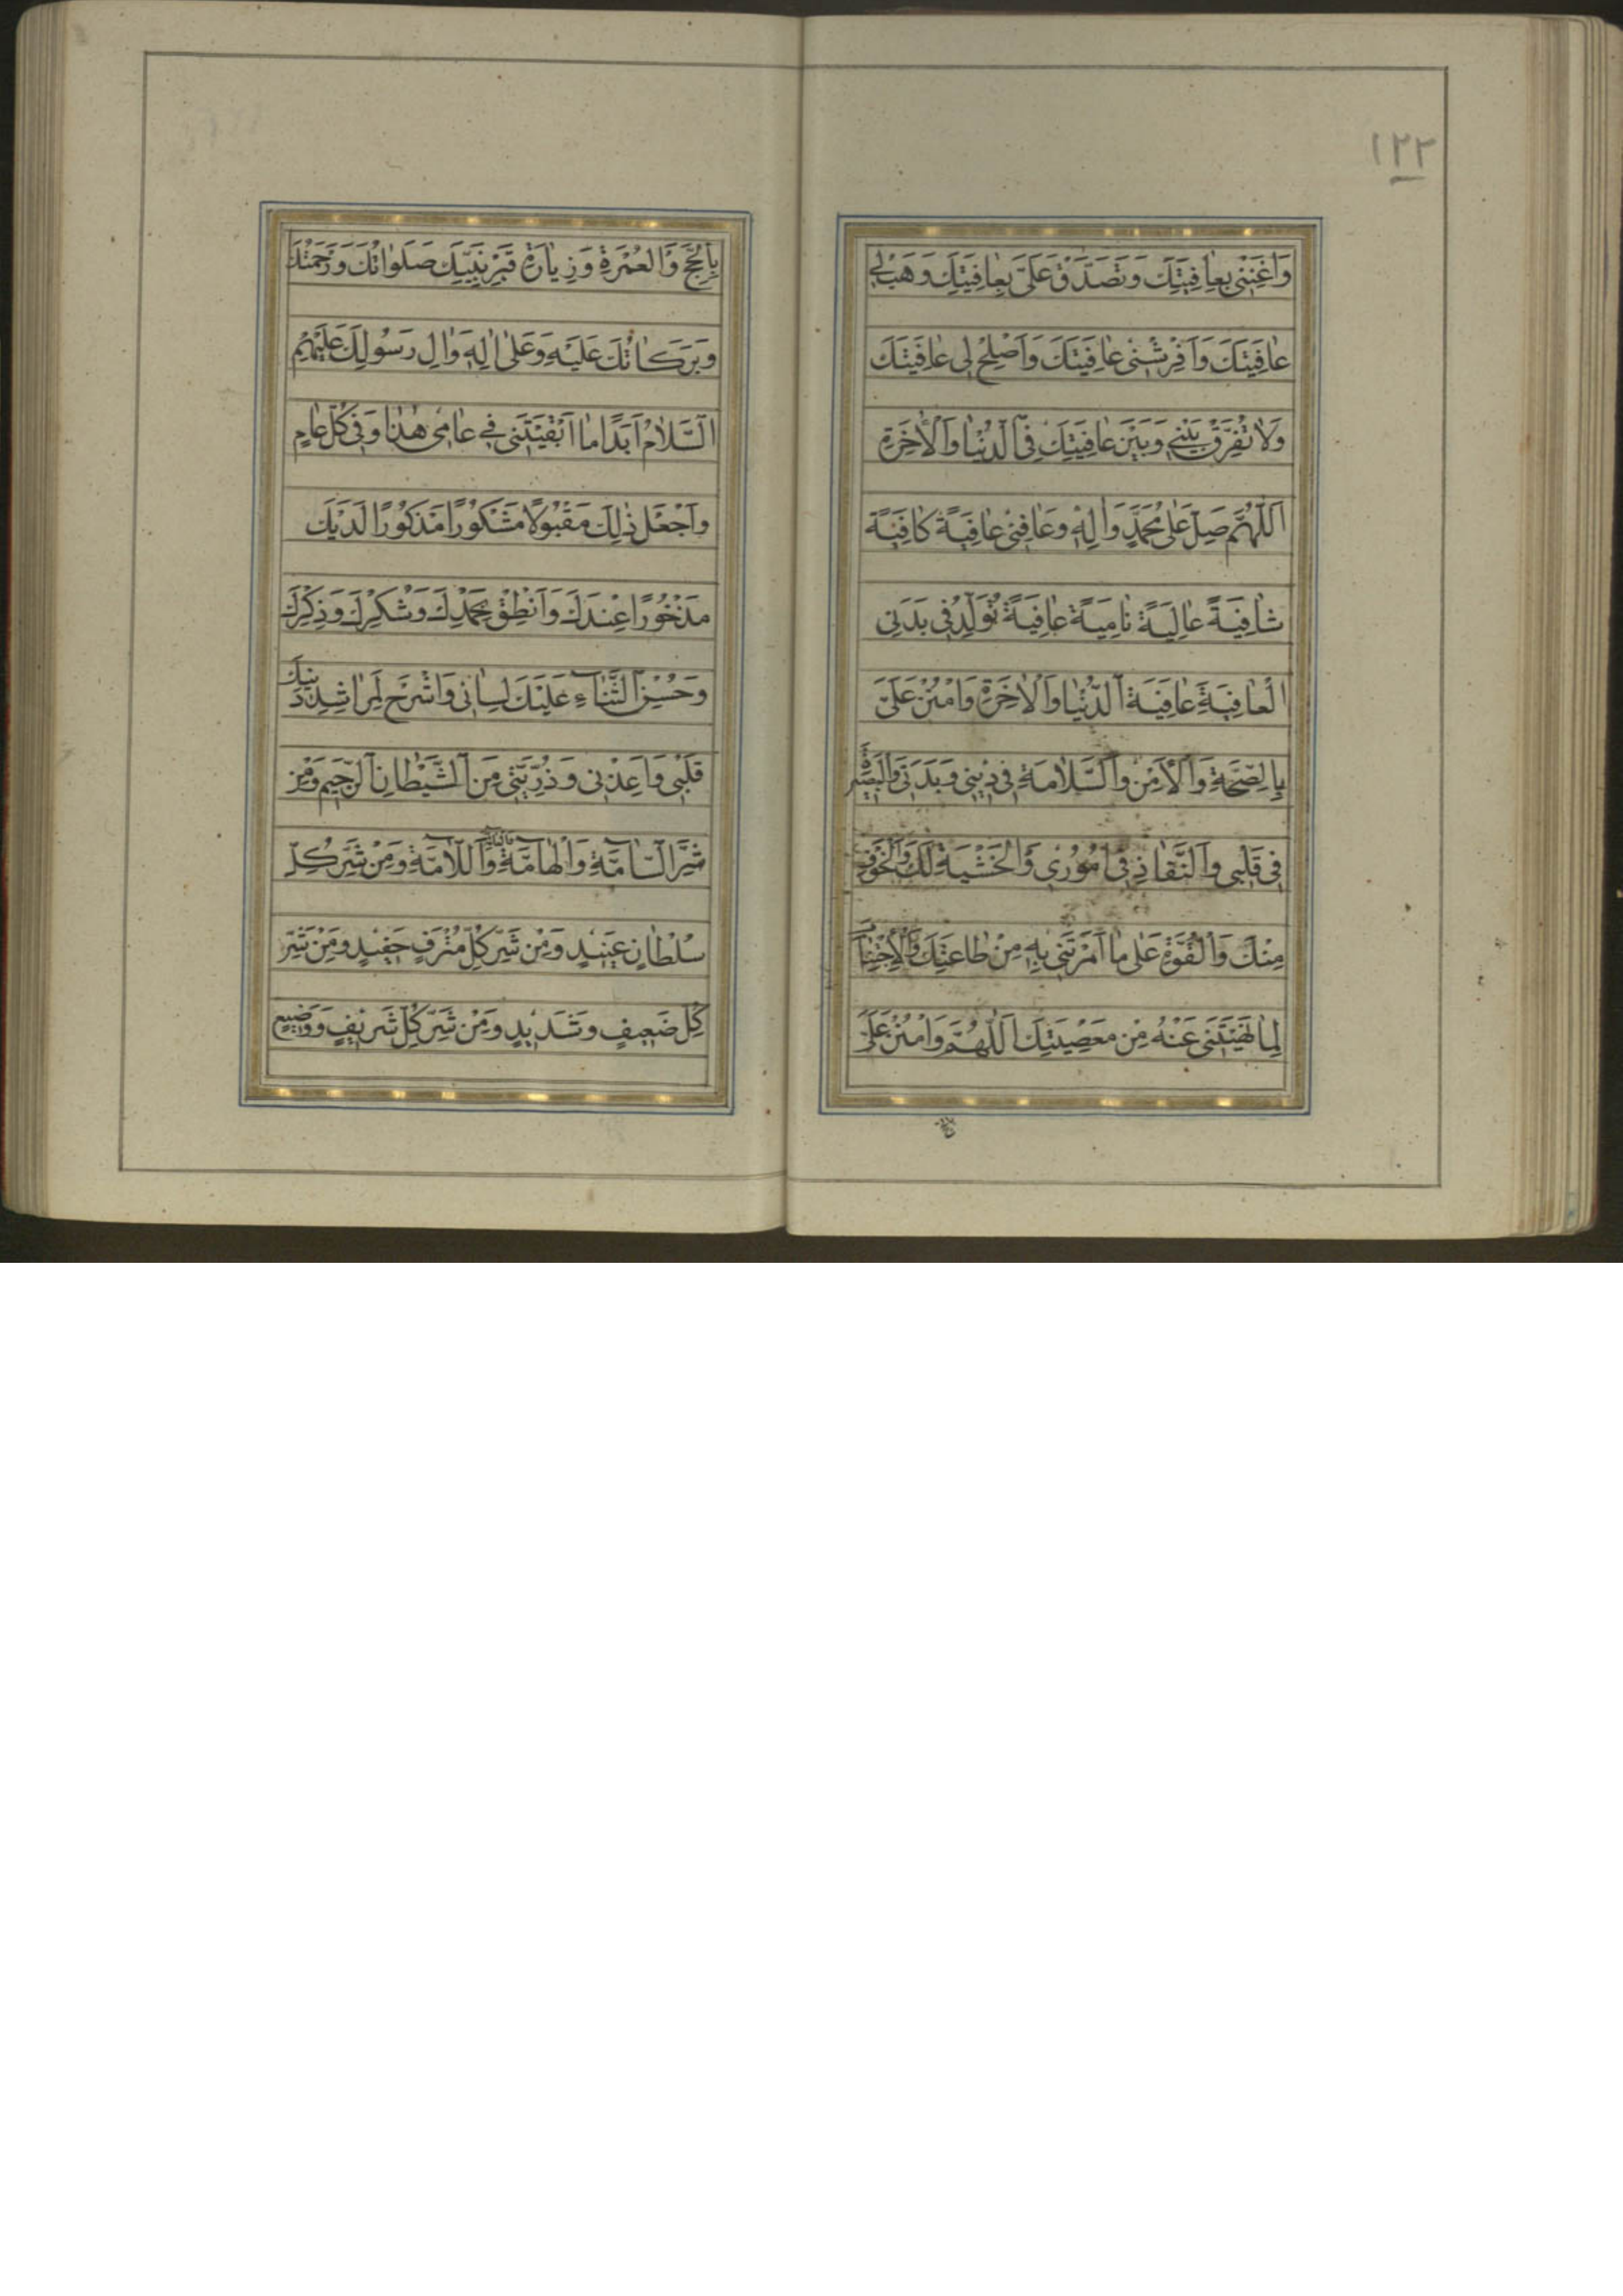 ١٢٢
وَاَغْنِنِى بِعٰافِيَتِكَ وَتَصَدَّقْ عَلَىَّ بِعٰافِيَتِكَ وَهَبْ لِى
عٰافِيَتَكَ وَاَفْرِشْنِى عٰافِيَتَكَ وَاَصْلِحْ لِى عٰافِيَتَكَ
وَلاٰ تُفَرِّقْ بَيْنِى وَبَيْنَ عٰافِيَتِكَ فِى الدُّنْيٰا وَالْاٰخِرَةِ
اَللّٰهُمَّ صَلِّ عَلٰى مُحَمَّدٍ وَاٰلِهِ وَعٰافِنِى عٰافِيَةً كٰافِيَةً
شٰافِيَةً عٰالِيَةً نٰامِيَةً عٰافِيَةً تُوَلِّدُ فِى بَدَنِى
الْعٰافِيَةَ عٰافِيَةَ الدُّنْيٰا وَالْاٰخِرَةِ وَامْنُنْ عَلَىَّ
بِالصِّحَّةِ وَالْاَمْنِ وَالسَّلاٰمَةِ فِى دِيْنِى وَبَدَنِى وَالْبَصِيْرَةِ
فِى قَلْبِى وَالنَّفٰاذِ فِى اُمُوْرِى وَالْخَشْيَةِ لَكَ وَالْخَوْفِ
مِنْكَ وَالْقُوَّةِ عَلٰى مٰا اَمَرْتَنِى بِهِ مِنْ طٰاعَتِكَ وَالْاِجْتِنٰابِ
لِمٰا نَهَيْتَنِى عَنْهُ مِنْ مَعْصِيَتِكَ اَللّٰهُمَّ وَامْنُنْ عَلَىَّ
بِالْحَجِّ وَالْعُمْرَةِ وَزِيٰارَةِ قَبْرِ نَبِيِّكَ صَلَوٰاتُكَ وَرَحْمَتُكَ
وَبَرَكٰاتُكَ عَلَيْهِ وَعَلٰى اٰلِهِ وَاٰلِ رَسُولِكَ عَلَيْهِمُ
السَّلاٰمُ اَبَدًا مٰا اَبْقَيْتَنِى فِى عٰامِى هٰذٰا وَفِى كُلِّ عٰامٍ
وَاجْعَلْ ذٰلِكَ مَقْبُوْلًا مَشْكُوْرًا مَذْكُوْرًا لَدَيْكَ
مَذْخُوْرًا عِنْدَكَ وَاَنْطِقْ بِحَمْدِكَ وَشُكْرِكَ وَذِكْرِكَ
وَحُسْنِ الثَّنٰاءِ عَلَيْكَ لِسٰانِى وَاشْرَحْ لِمَرٰاشِدِ دِيْنِكَ
قَلْبِى وَاَعِذْنِى وَذُرِّيَّتِى مِنَ الشَّيْطٰانِ الرَّجِيْمِ وَمِنْ
شَرِّ السّٰامَّةِ وَالْهٰامَّةِ وَاللّاٰمَّةِ وَمِنْ شَرِّ كُلِّ
سُلْطٰانٍ عَنِيْدٍ وَمِنْ شَرِّ كُلِّ مُتْرَفٍ حَفِيْدٍ وَمِنْ شَرِّ
كُلِّ ضَعِيْفٍ وَشَدِيْدٍ وَمِنْ شَرِّ كُلِّ شَرِيْفٍ وَوَضِيْعٍ